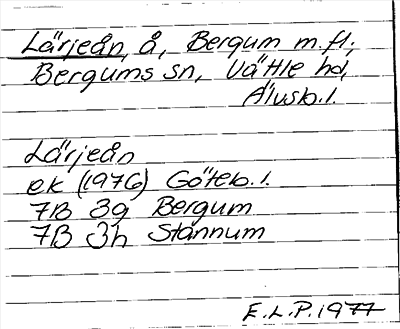 Lärjeån, å, Bergum m.fl.,
Bergums sn, Vättle hd,
Älvsb.l.
Lärjeån
ek (1976) Göteb. l.
7B 3g Bergum
7B 3h Stannum
E.L.P. 1977